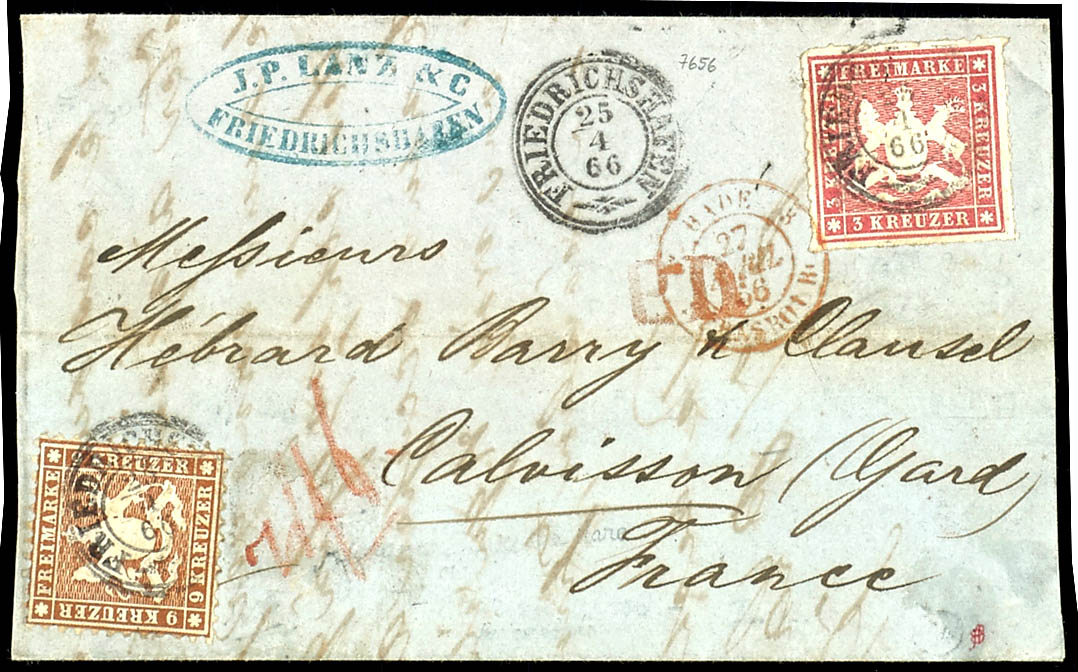 J. P. LANZ & C
FRIEDRICHSHAFEN
FRIEDRICHSHAFEN
25
4
66
7656
FREIMARKE
3 KREUZER
3 KREUZER
3 KREUZER
4
66
BADE
27
66
STRASBOURG
PD
Messieurs
Hébrard Barry & Clausel
Calvisson (Gard)
France
9 KREUZER
FREIMARKE
9 KREUZER
9 KREUZER